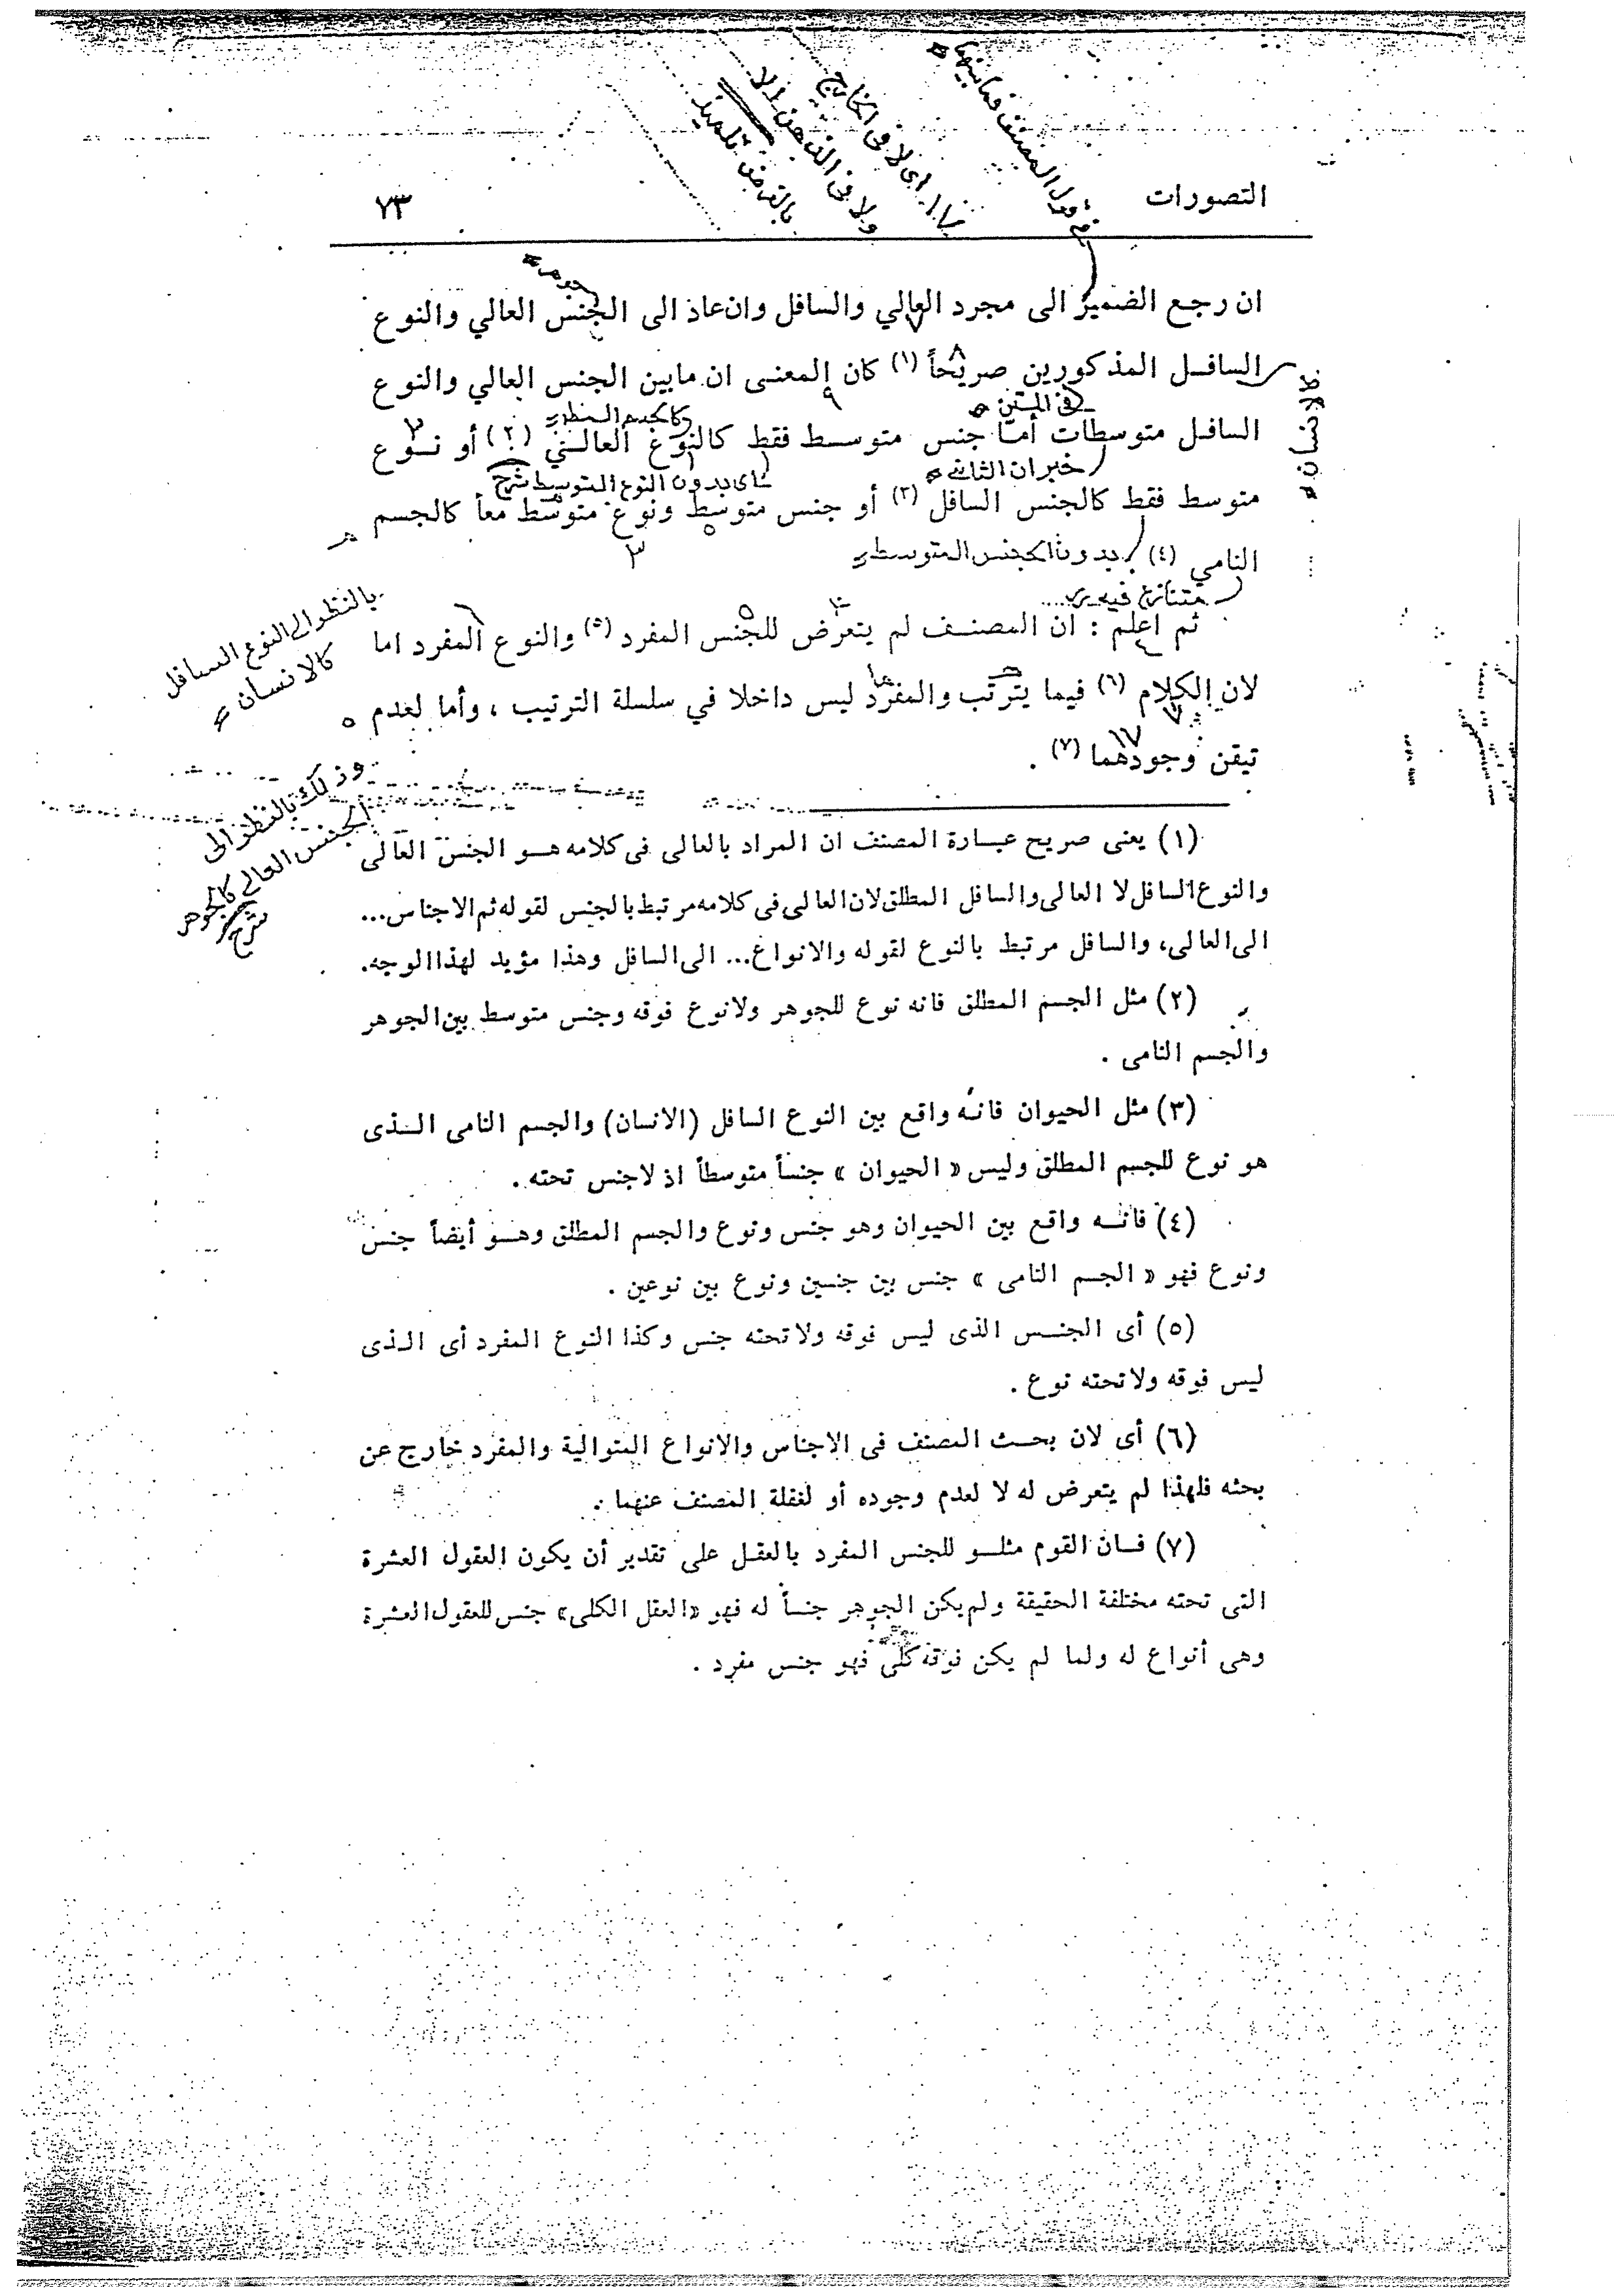 التصورات
٧٣
ان رجع الضمير الى مجرد العالي والسافل وان عاد الى الجنس العالي والنوع
السافل المذكورين صريحاً (١) كان المعنى ان مابين الجنس العالي والنوع
في المتن
السافل متوسطات أما جنس متوسط فقط كالنوع العالي (٢) أو نوع
خبر ان الثانية
اى بدون النوع المتوسط شرح
متوسط فقط كالجنس السافل (٣) أو جنس متوسط ونوع متوسط معاً كالجسم
النامي (٤)
بدون الجنس المتوسط
متنازع فيه
ثم اعلم : ان المصنف لم يتعرض للجنس المفرد (٥) والنوع المفرد اما
لان الكلام (٦) فيما يترتب والمفرد ليس داخلا في سلسلة الترتيب ، وأما لعدم
تيقن وجودهما (٧) .
كالانسان
بالنظر الى النوع السافل
كالانسان
وذلك بالنظر الى
الجنس العالي كالجوهر
شرح
(١) يعنى صريح عبارة المصنف ان المراد بالعالى فى كلامه هو الجنس العالى
والنوع السافل لا العالى والسافل المطلق لان العالى فى كلامه مرتبط بالجنس لقوله ثم الاجناس...
الى العالى، والسافل مرتبط بالنوع لقوله والانواع... الى السافل وهذا مؤيد لهذا الوجه.
(٢) مثل الجسم المطلق فانه نوع للجوهر ولانوع فوقه وجنس متوسط بين الجوهر
والجسم النامى .
(٣) مثل الحيوان فانه واقع بين النوع السافل (الانسان) والجسم النامى الذى
هو نوع للجسم المطلق وليس « الحيوان » جنساً متوسطاً اذ لاجنس تحته .
(٤) فانه واقع بين الحيوان وهو جنس ونوع والجسم المطلق وهو أيضاً جنس
ونوع فهو « الجسم النامى » جنس بين جنسين ونوع بين نوعين .
(٥) أى الجنس الذى ليس فوقه ولاتحته جنس وكذا النوع المفرد أى الذى
ليس فوقه ولاتحته نوع .
(٦) أى لان بحث المصنف فى الاجناس والانواع المتوالية والمفرد خارج عن
بحثه فلهذا لم يتعرض له لا لعدم وجوده أو لغفلة المصنف عنهما .
(٧) فان القوم مثلو للجنس المفرد بالعقل على تقدير أن يكون العقول العشرة
التى تحته مختلفة الحقيقة ولم يكن الجوهر جنساً له فهو «العقل الكلى» جنس للعقول العشرة
وهى أنواع له ولما لم يكن فوقه كلى فهو جنس مفرد .